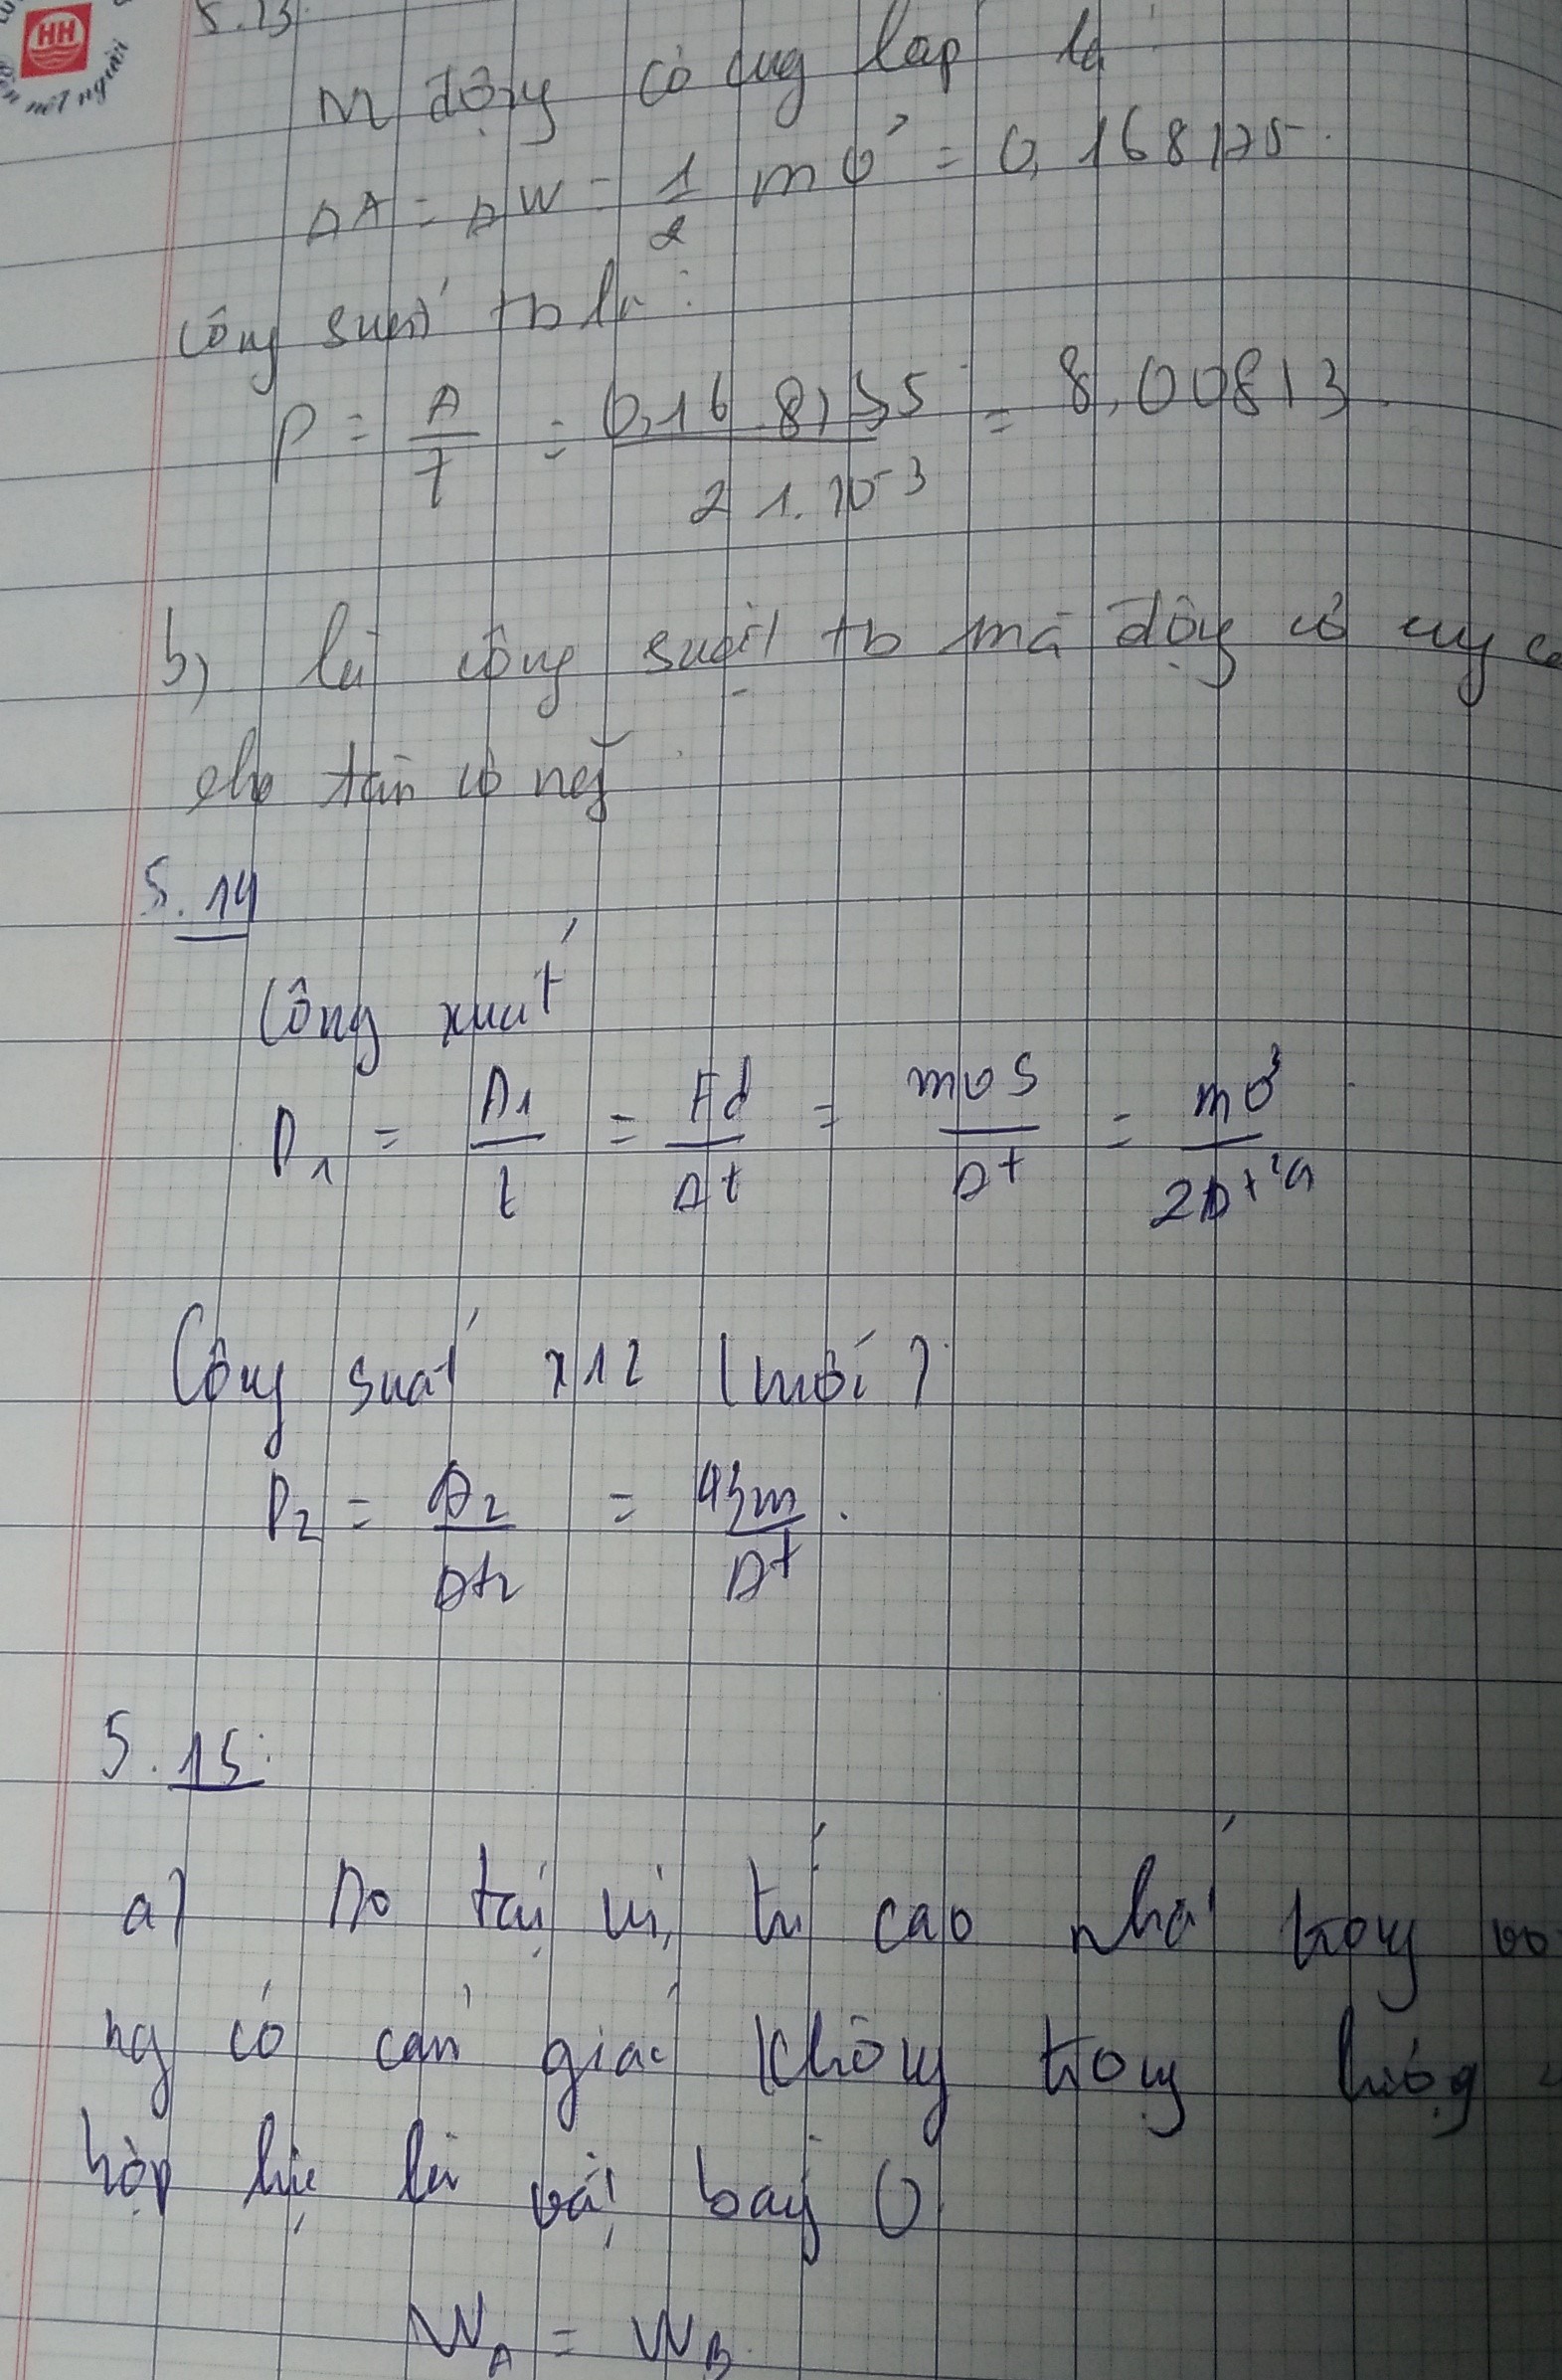 HH
nét người
5.13
động cơ cug lap là
ΔA = ΔW = 1/2 mv² = 0,168175.
công suất tb là:
P = A/t = 0,168135 / 21.10⁻³ = 8,00813.
b) là công suất tb mà động cơ cug c
cho tàu
5.14
Công xuất
P₁ = A₁/t = Fd/Δt = mvs/Δt = mv³/2Δt²a
Công suất x12 (mới)
P₂ = A₂/Δt₂ = m/Δt.
5.15:
a) Do tại vị trí cao nhất trong vò
ng có cảm giác không trọng lượng
hợp lực là vật bay 0
W_A = W_B